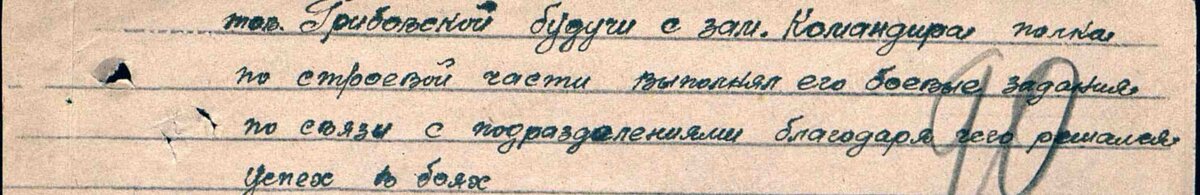 тов. Грибовской будучи с зам. Командира полка
по строевой части выполнял его боевые задания
по связи с подразделениями благодаря чего решался
успех в боях
90